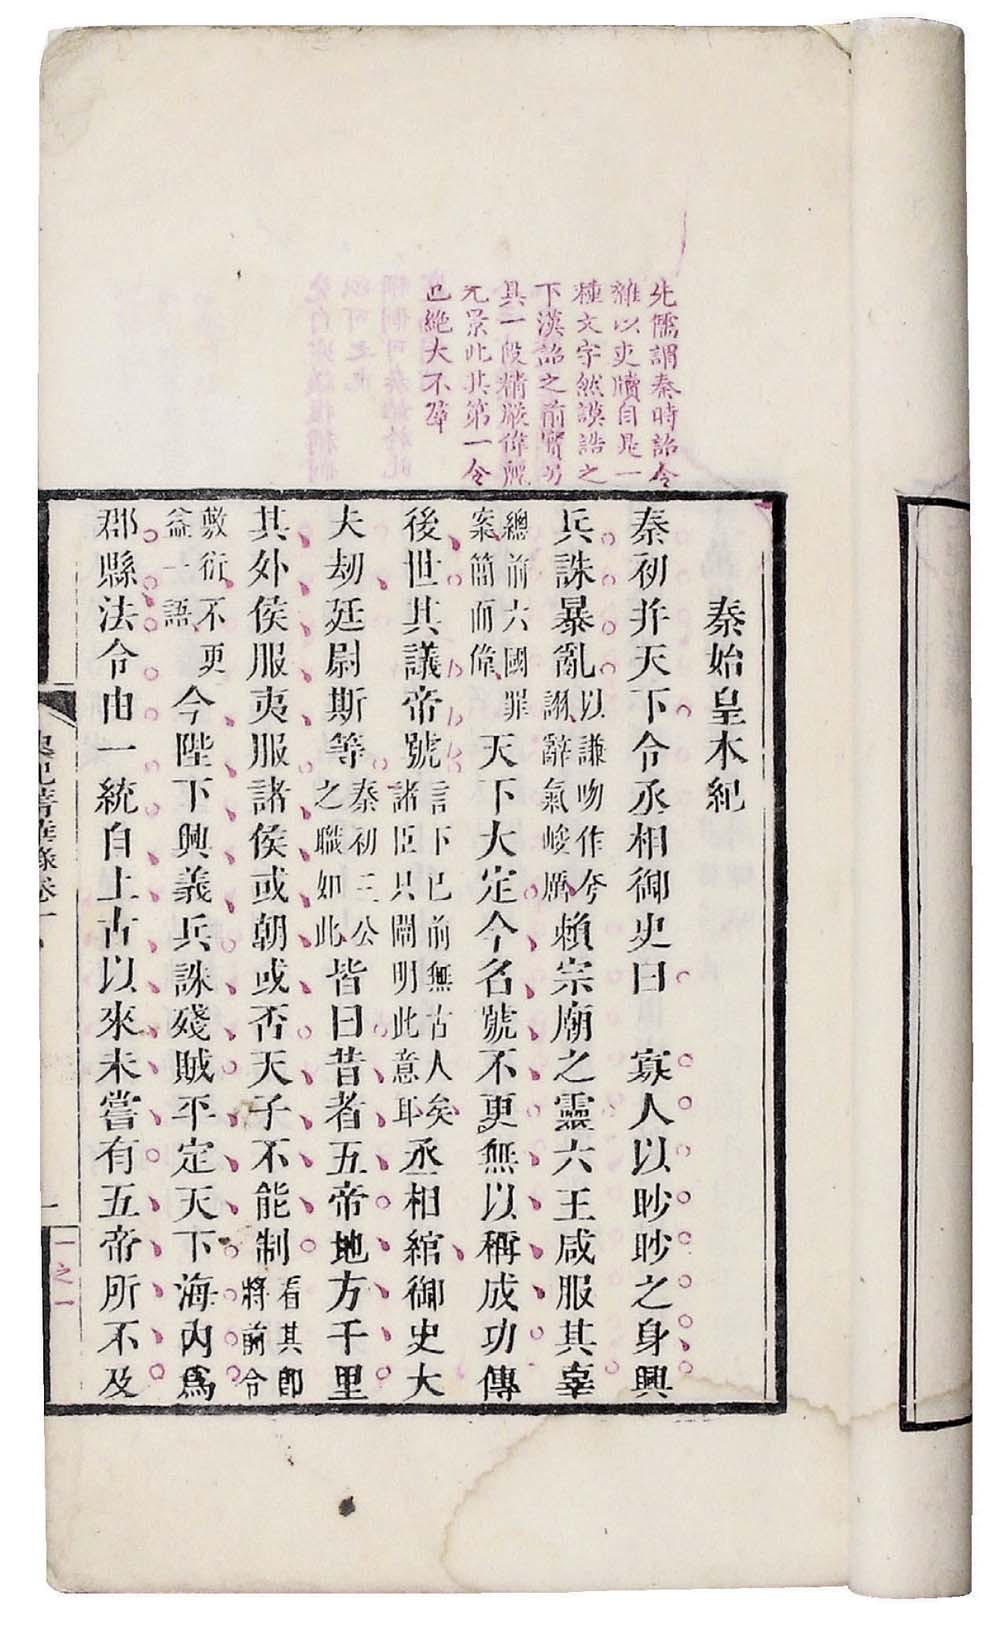 先儒謂秦時詔令
雜以吏牘自是一
種文字然謨誥之
下漢詔之前實另
具一段精嚴偉麗
光景此其第一令
也絶大不羣
秦始皇本紀
秦初并天下令丞相御史曰　寡人以眇眇之身興
兵誅暴亂以謙吻作兮誷辭氣峻厲賴宗廟之靈六王咸服其辜
總前六國罪案簡而偉天下大定今名號不更無以稱成功傳
後世其議帝號言下已前無古人矣諸臣只闡明此意耳丞相綰御史大
夫劫廷尉斯等秦初三公之職如此皆曰昔者五帝地方千里
其外侯服夷服諸侯或朝或否天子不能制看其即將前令
敷衍不更益一語今陛下興義兵誅殘賊平定天下海內爲
郡縣法令由一統自上古以來未嘗有五帝所不及
史記菁華錄卷一
一之一